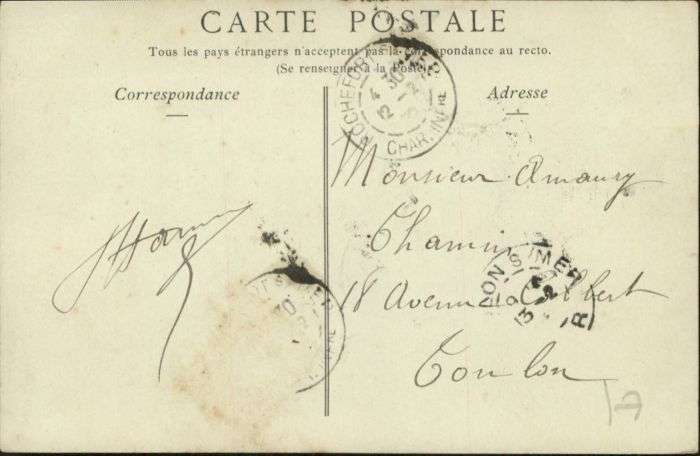 CARTE POSTALE
Tous les pays étrangers n'acceptent pas la correspondance au recto.
(Se renseigner à la Poste).
Correspondance
Adresse
ROCHEFORT S MER
CHAR. INF RE
Monsieur Amaury
Chamin
18 Avenue Colbert
Toulon